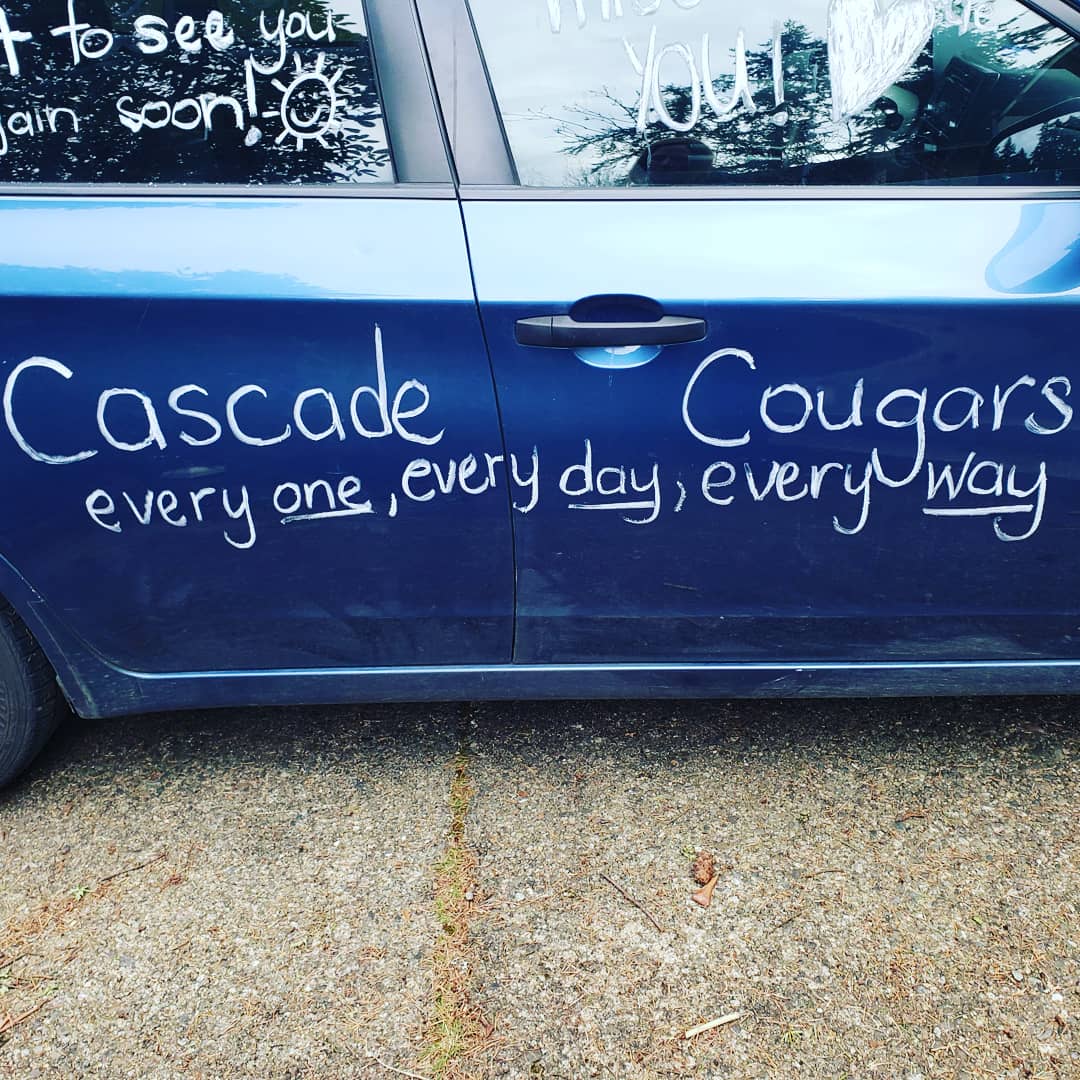 to see you
soon!
YOU!
Cascade Cougars
every one, every day, every way